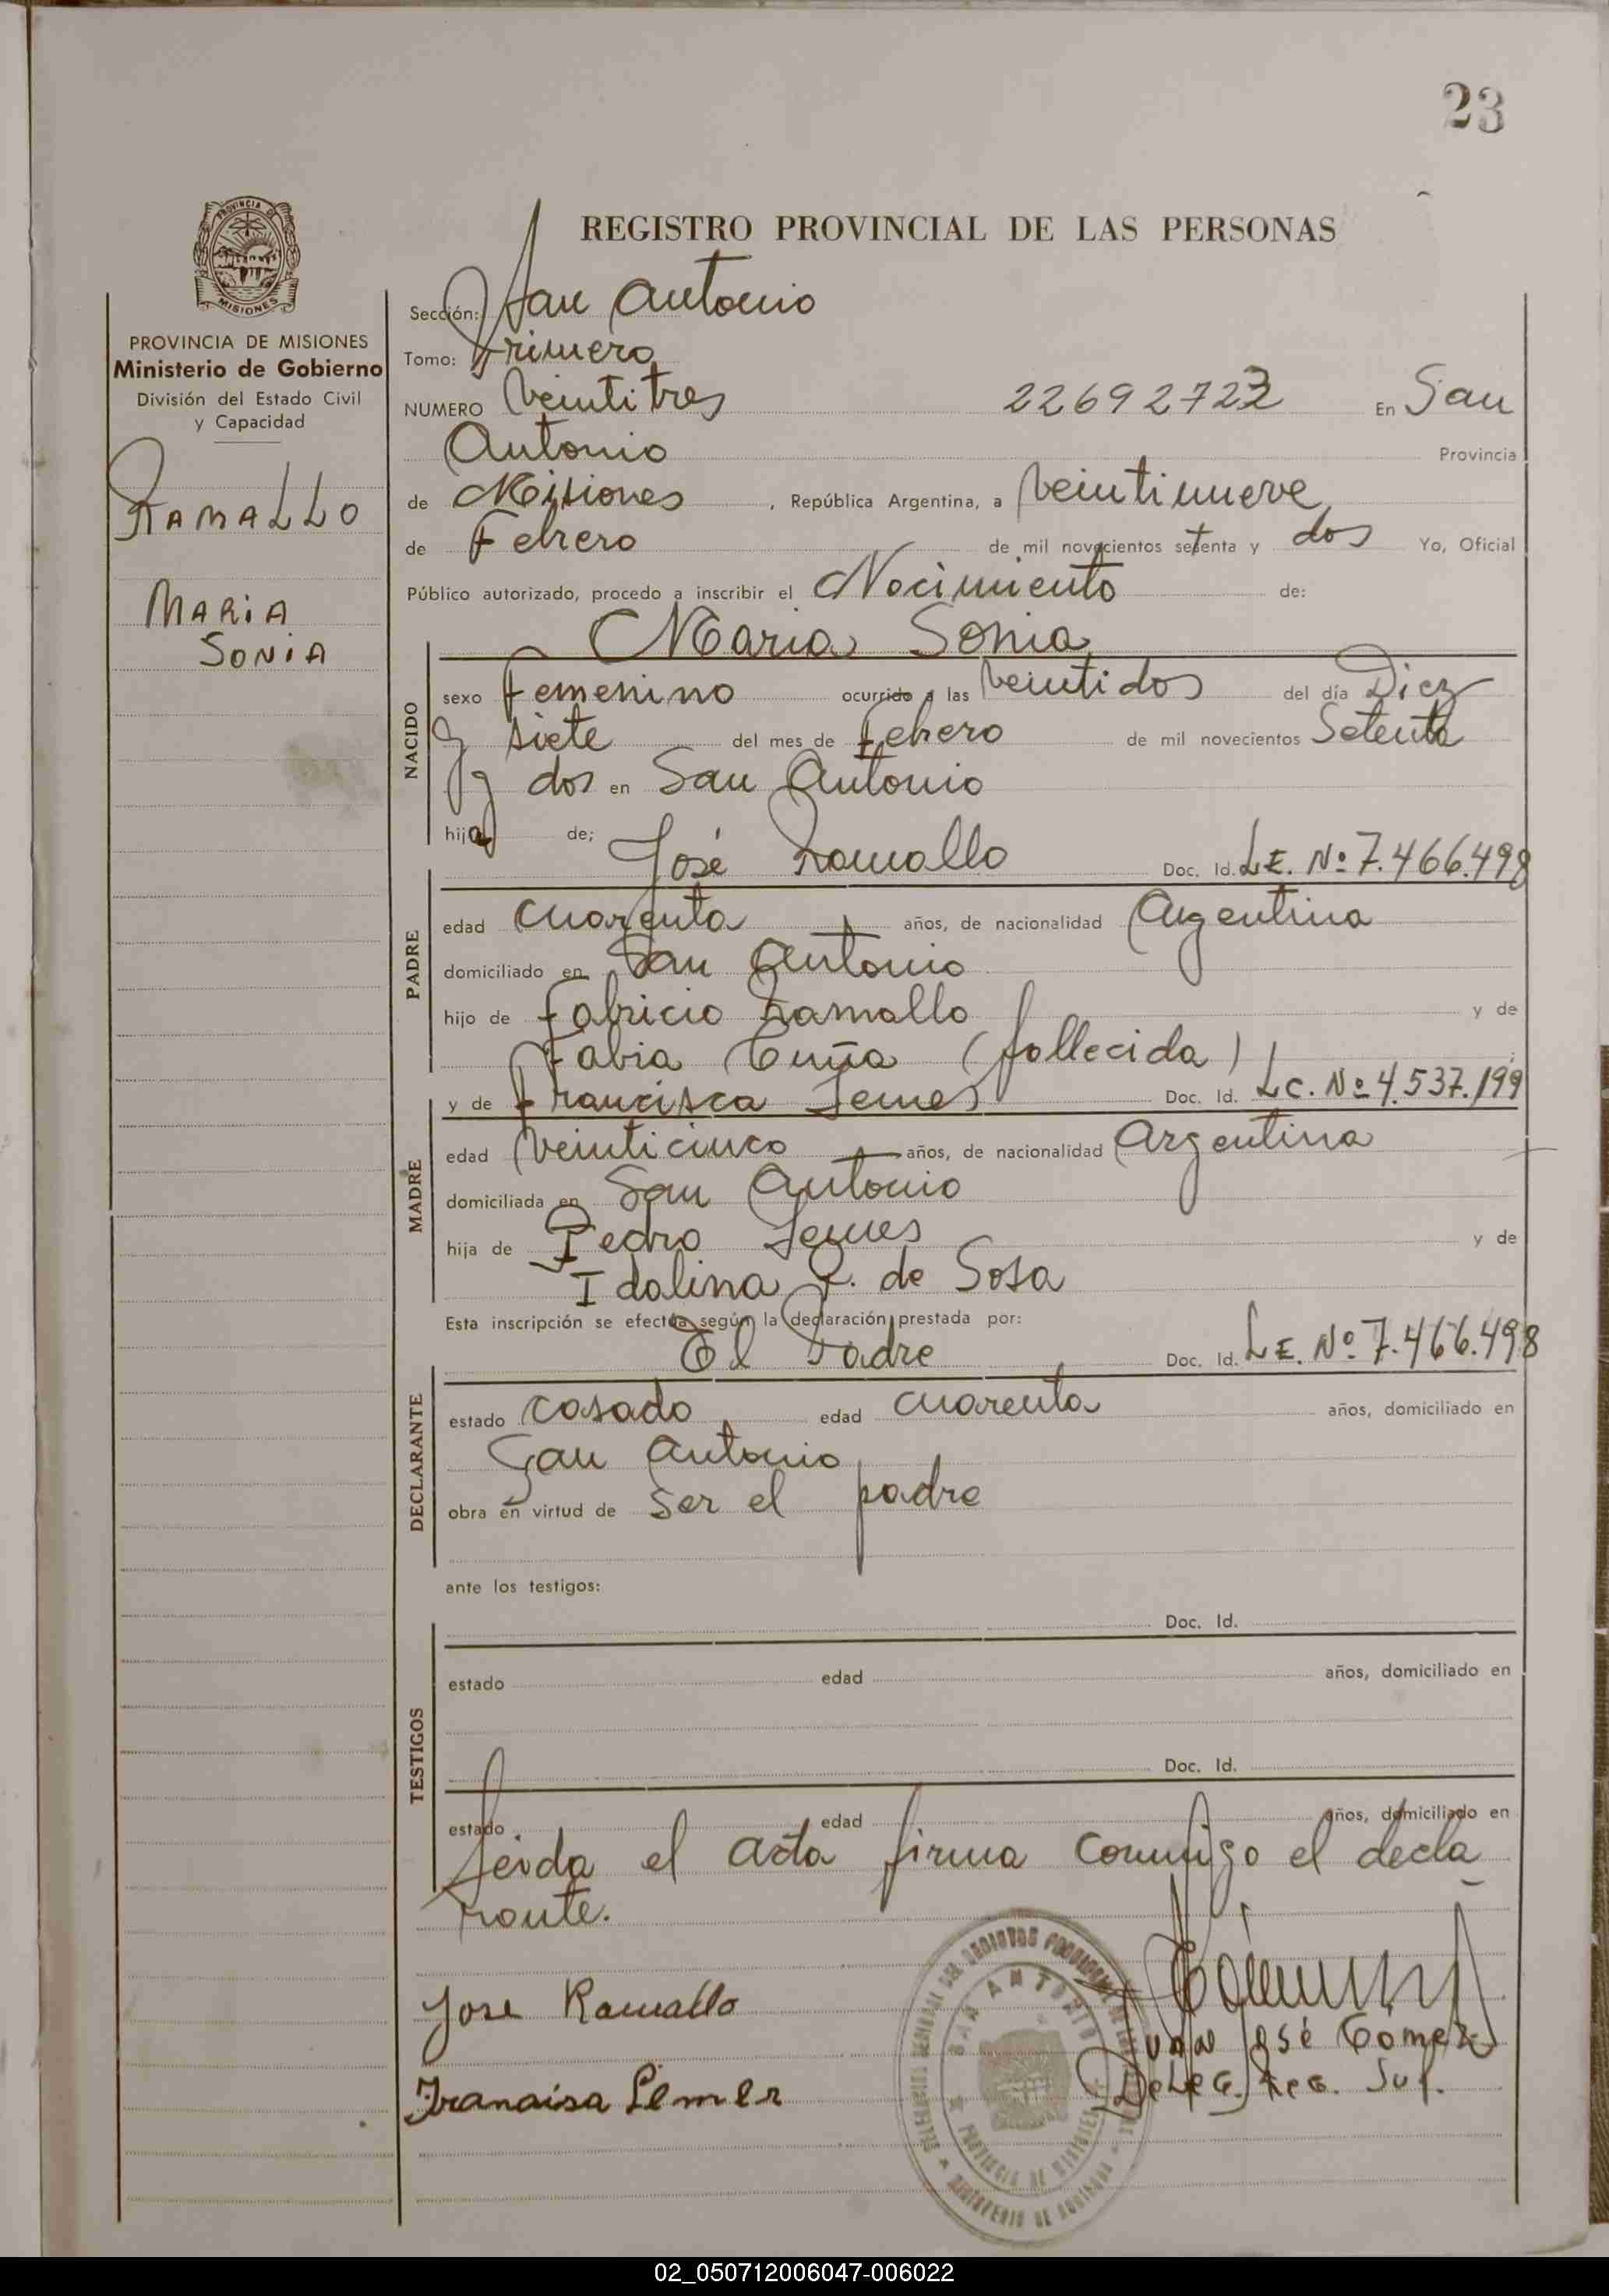 23
PROVINCIA DE
MISIONES
REGISTRO PROVINCIAL DE LAS PERSONAS
PROVINCIA DE MISIONES
Ministerio de Gobierno
División del Estado Civil
y Capacidad
RAMALLO
MARIA
SONIA
Sección: San Antonio
Tomo: Primero
NUMERO Veintitres 22692723 En San
Antonio Provincia
de Misiones , República Argentina, a Veintinueve
de Febrero de mil novecientos setenta y dos Yo, Oficial
Público autorizado, procedo a inscribir el Nacimiento de:
Maria Sonia
NACIDO
sexo Femenino ocurrido a las Veintidos del día Diez
y siete del mes de Febrero de mil novecientos Setenta
y dos en San Antonio
hija de;
José Ramallo Doc. Id. L.E. Nº 7.466.498
PADRE
edad Cuarenta años, de nacionalidad Argentina
domiciliado en San Antonio
hijo de Fabricio Ramallo y de
Fabia (fallecida)
y de Francisca Lemes Doc. Id. L.C. Nº 4.537.199
MADRE
edad Veinticinco años, de nacionalidad Argentina
domiciliada en San Antonio
hija de Pedro Lemes y de
Idalina P. de Sosa
Esta inscripción se efectúa según la declaración prestada por:
El Padre Doc. Id. L.E. Nº 7.466.498
DECLARANTE
estado Casado edad Cuarenta años, domiciliado en
San Antonio
obra en virtud de ser el padre
ante los testigos:
Doc. Id.
TESTIGOS
estado edad años, domiciliado en
Doc. Id.
estado edad años, domiciliado en
Leida el acta firma conmigo el decla
rante.
Jose Ramallo
Juan José Gómez
Deleg. Reg. Sup.
SAN ANTONIO
PROVINCIA DE MISIONES
MINISTERIO DE GOBIERNO
02_050712006047-006022